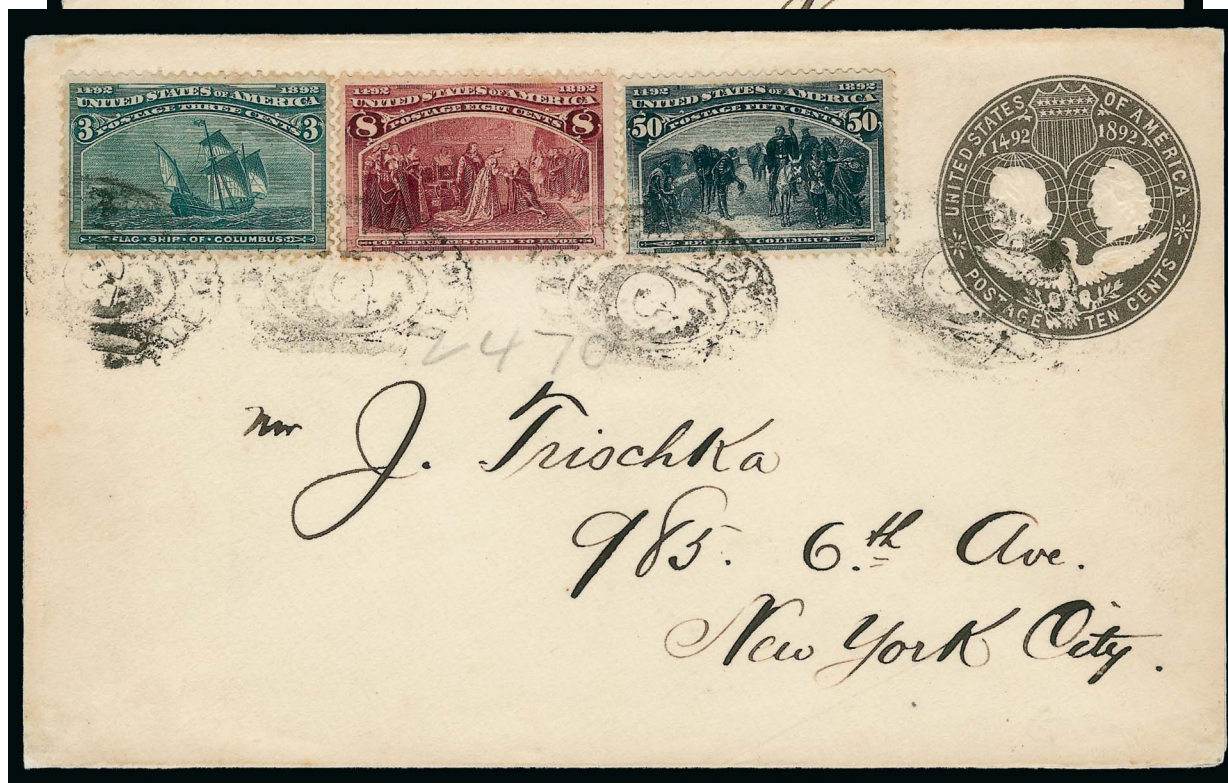 1492 1892
UNITED STATES OF AMERICA
POSTAGE THREE CENTS
3 3
FLAG · SHIP · OF · COLUMBUS
1492 1892
UNITED STATES OF AMERICA
POSTAGE EIGHT CENTS
8 8
COLUMBUS RESTORED TO FAVOR
1492 1892
UNITED STATES OF AMERICA
POSTAGE FIFTY CENTS
50 50
RECALL OF COLUMBUS
UNITED STATES OF AMERICA
1492 1892
POSTAGE TEN CENTS
2470
Mr J. Trischka
985. 6.th Ave.
New York City.